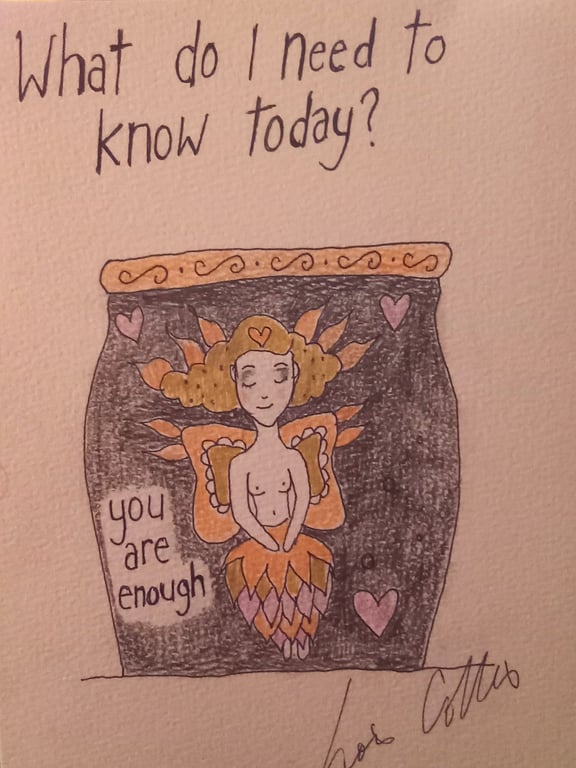 What do I need to
know today?
you
are
enough